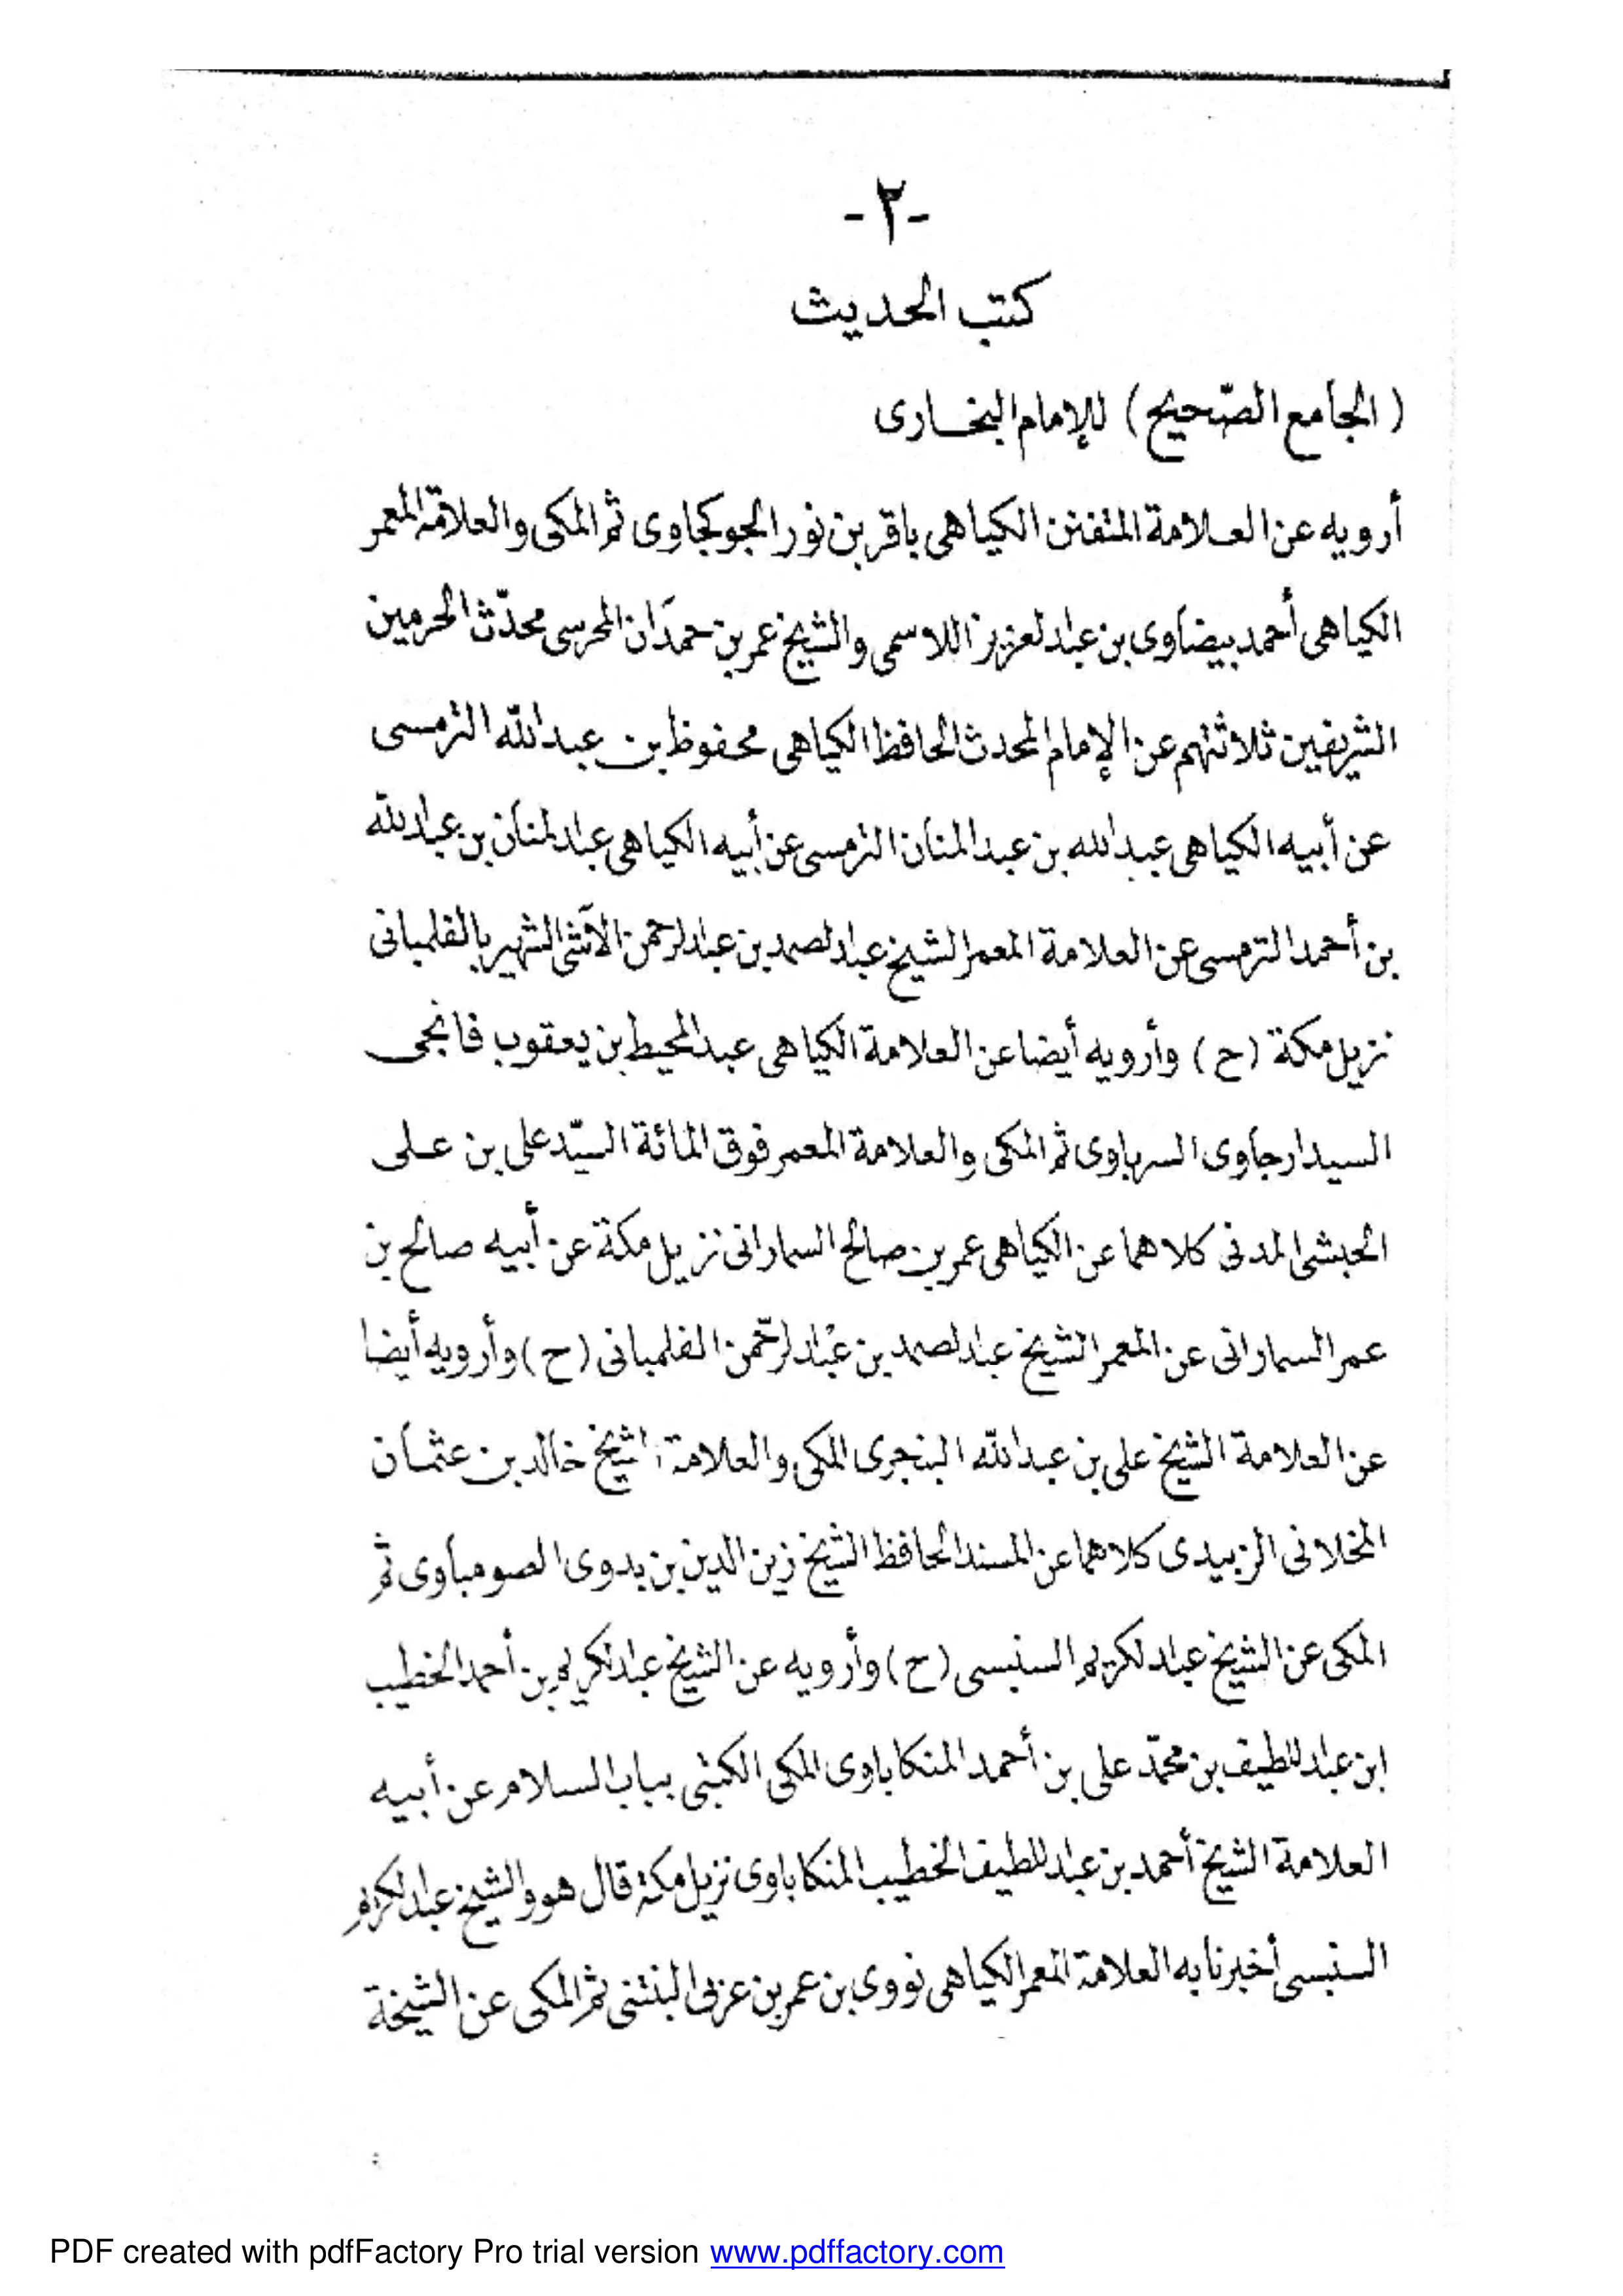 -٢-
كتب الحديث
(الجامع الصّحيح) للإمام البخارى
أرويه عن العلامة المتفنن الكياهى باقر بن نور الجوكجاوى ثم المكى والعلامة المعمر
الكياهى أحمد بيضاوى بن عبد لعزيز اللاسمى والشيخ عمر بن حمدَان المحرسى محدّث الحرمين
الشريفين ثلاثتهم عن الإمام المحدث الحافظ الكياهى محفوظ بن عبد الله الترمسى
عن أبيه الكياهى عبد الله بن عبد المنان الترمسى عن أبيه الكياهى عبد لمنان بن عبد لله
بن أحمد الترمسى عن العلامة المعمر الشيخ عبد لصمد بن عبد لرحمن الآشى الشهير بالفلمبانى
نزيل مكة (ح) وأرويه أيضا عن العلامة الكياهى عبد المحيط بن يعقوب فانجى
السيدارجاوى السرباوى ثم المكى والعلامة المعمر فوق المائة السيّد على بن على
الحبشى المدنى كلاهما عن الكياهى عمر بن صالح السمارانى نزيل مكة عن أبيه صالح بن
عمر السمارانى عن المعمر الشيخ عبد لصمد بن عبد لرّحمن الفلمبانى (ح) وأرويه أيضا
عن العلامة الشيخ على بن عبد الله البنجرى المكى والعلامة الشيخ خالد بن عثمان
المخلانى الزبيدى كلاهما عن المسند الحافظ الشيخ زين الدين بن بدوى الصومباوى ثم
المكى عن الشيخ عبد لكريم السنبسى (ح) وأرويه عن الشيخ عبد لكريم بن أحمد الخطيب
ابن عبد للطيف بن محمّد على بن أحمد المنكاباوى المكى الكتبى بباب السلام عن أبيه
العلامة الشيخ أحمد بن عبد للطيف الخطيب المنكاباوى نزيل مكة قال هو والشيخ عبد لكريم
السنبسى أخبرنا به العلامة المعمر الكياهى نووى بن عمر بن عربى البنتنى ثم المكى عن الشيخة
PDF created with pdfFactory Pro trial version www.pdffactory.com